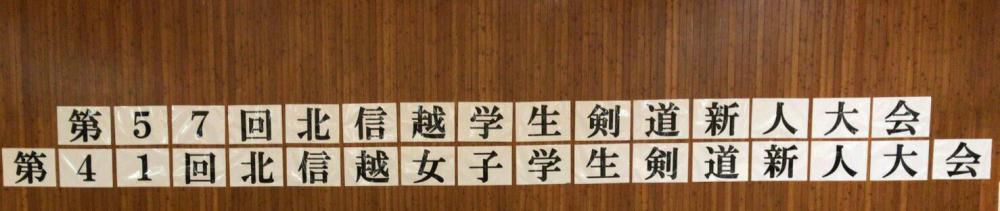 第57回北信越学生剣道新人大会
第41回北信越女子学生剣道新人大会